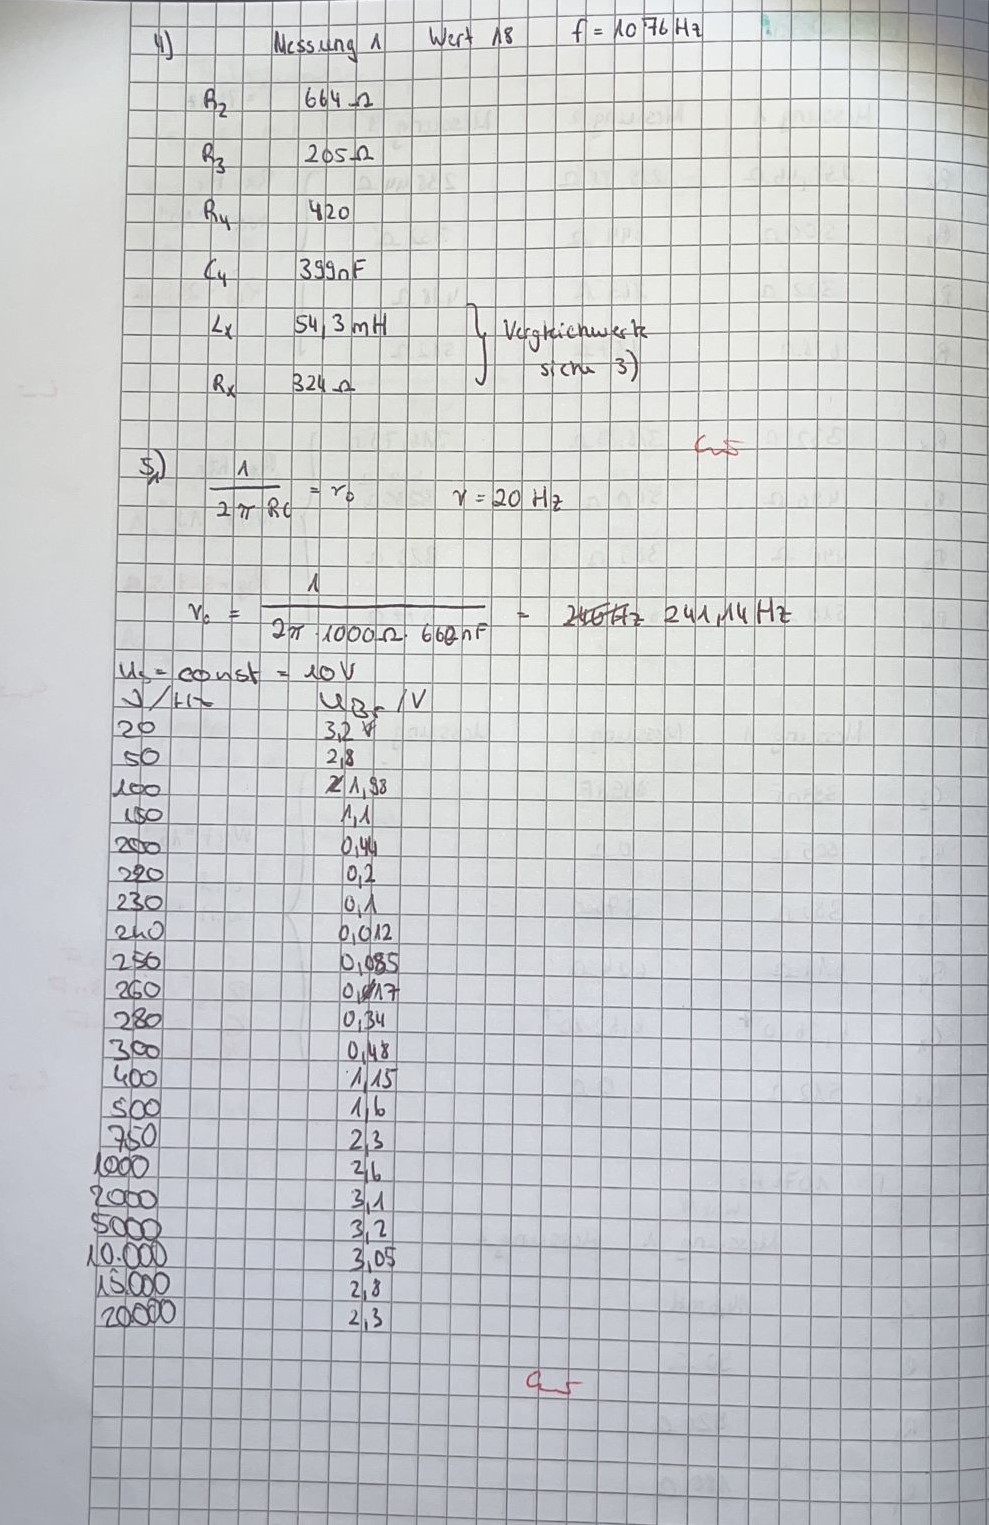 4) Messung 1 Wert 18 f = 1076 Hz
R2 664 Ω
R3 205 Ω
R4 420
C4 399nF
Lx 54,3 mH } Vergleichwerte
siehe 3)
Rx 324 Ω
5.) 1 / 2π RC = ν0 ν = 20 Hz
ν0 = 1 / 2π · 1000Ω · 660nF = 241,14 Hz
Us = const = 10V
ν/Hz UBr /V
20 3,2
50 2,8
100 1,98
150 1,1
200 0,44
220 0,2
230 0,1
240 0,012
250 0,085
260 0,17
280 0,34
300 0,48
400 1,15
500 1,6
750 2,3
1000 2,6
2000 3,1
5000 3,2
10.000 3,05
15.000 2,8
20000 2,3